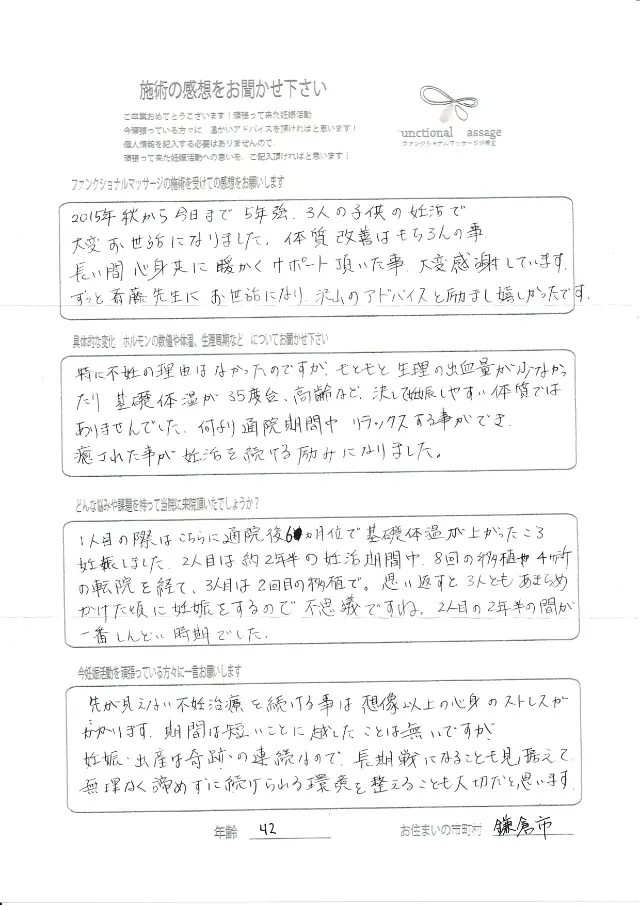 施術の感想をお聞かせ下さい
ご卒業おめでとうございます！頑張って来た妊娠活動
今頑張っている方々に 温かいアドバイスを頂ければと思います！
個人情報を記入する必要はありませんので、
頑張って来た妊娠活動への思いを、ご記入頂ければと思います！
unctional assage
ファンクショナルマッサージ治療室
ファンクショナルマッサージの施術を受けての感想をお願いします
2015年秋から今日まで5年強、3人の子供の妊活で
大変お世話になりました。体質改善はもちろんの事
長い間心身共に暖かくサポート頂いた事、大変感謝しています。
ずっと斎藤先生にお世話になり、沢山のアドバイスと励まし嬉しかったです。
具体的な変化 ホルモンの数値や体温、生理周期など についてお聞かせ下さい
特に不妊の理由はなかったのですが、もともと生理の出血量が少なか
たり 基礎体温が35度台、高齢など、決して妊娠しやすい体質では
ありませんでした。何より通院期間中 リラックスする事ができ
癒された事が妊活を続ける励みになりました。
どんな悩みや課題を持って当院に来院頂いたでしょうか？
1人目の際はこちらに通院後6ヵ月位で基礎体温が上がったころ
妊娠しました。2人目は約2年半の妊活期間中、8回の移植や4ヶ所
の転院を経て、3人目は2回目の移植で。思い返すと3人ともあきらめ
かけた頃に妊娠をするので不思議ですね。2人目の2年半の間が
一番しんどい時期でした。
今妊娠活動を頑張っている方々に一言お願いします
先が見えない不妊治療を続ける事は想像以上の心身のストレスが
かかります。期間は短いことに越したことは無いですが
妊娠・出産は奇跡の連続なので、長期戦になることも見据えて
無理なく諦めずに続けられる環境を整えることも大切だと思います。
年齢 42 お住まいの市町村 鎌倉市